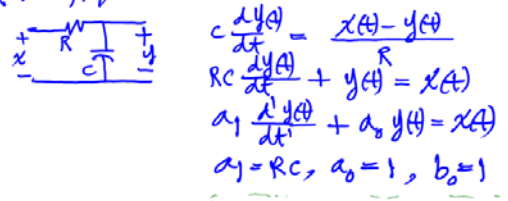 + R + C dy(t)/dt = (x(t) - y(t))/R
x C y
- -
RC dy(t)/dt + y(t) = x(t)
a₁ d¹y(t)/dt¹ + a₀ y(t) = x(t)
a₁ = RC, a₀ = 1, b₀ = 1